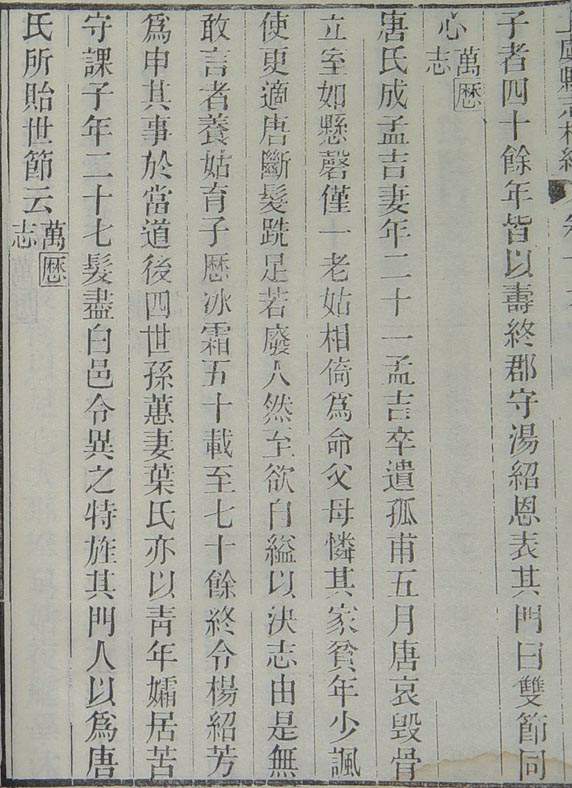 上虞縣志校續
子者四十餘年皆以壽終郡守湯紹恩表其門曰雙節同
心萬曆志
唐氏成孟吉妻年二十一孟吉卒遺孤甫五月唐哀毀骨
立室如懸磬僅一老姑相倚爲命父母憐其家貧年少諷
使更適唐斷髮跣足若廢人然至欲自縊以決志由是無
敢言者養姑育子歷冰霜五十載至七十餘終令楊紹芳
爲申其事於當道後四世孫蕙妻葉氏亦以青年孀居苦
守課子年二十七髮盡白邑令異之特旌其門人以爲唐
氏所貽世節云萬曆志